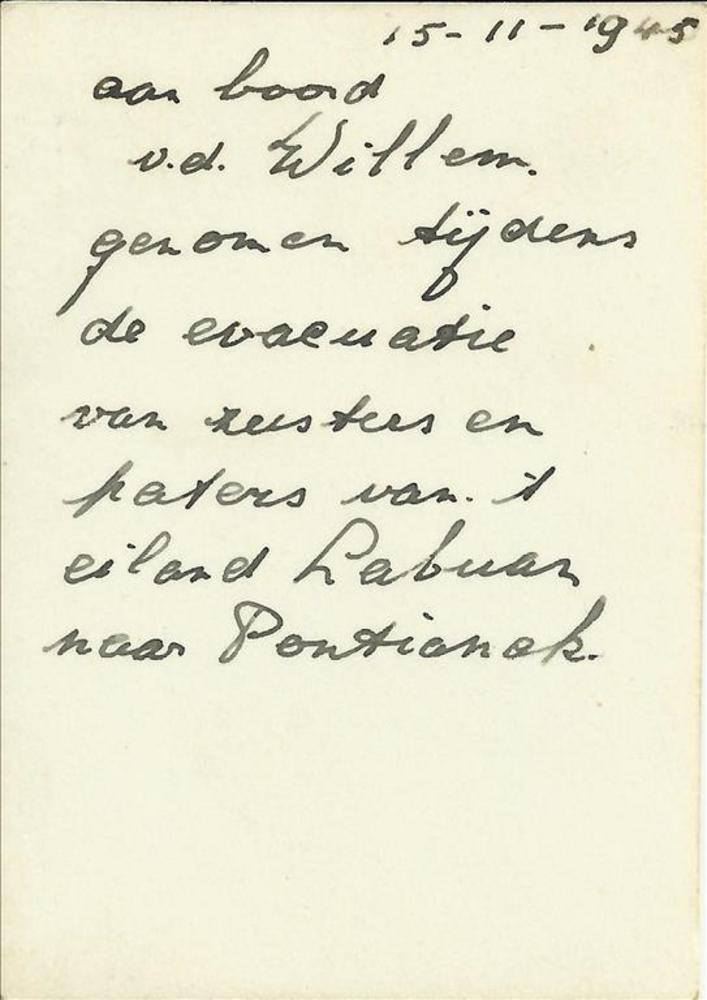 15-11-1945
aan boord
v.d. Willem.
genomen tijdens
de evacuatie
van zusters en
paters van 't
eiland Labuan
naar Pontianak.